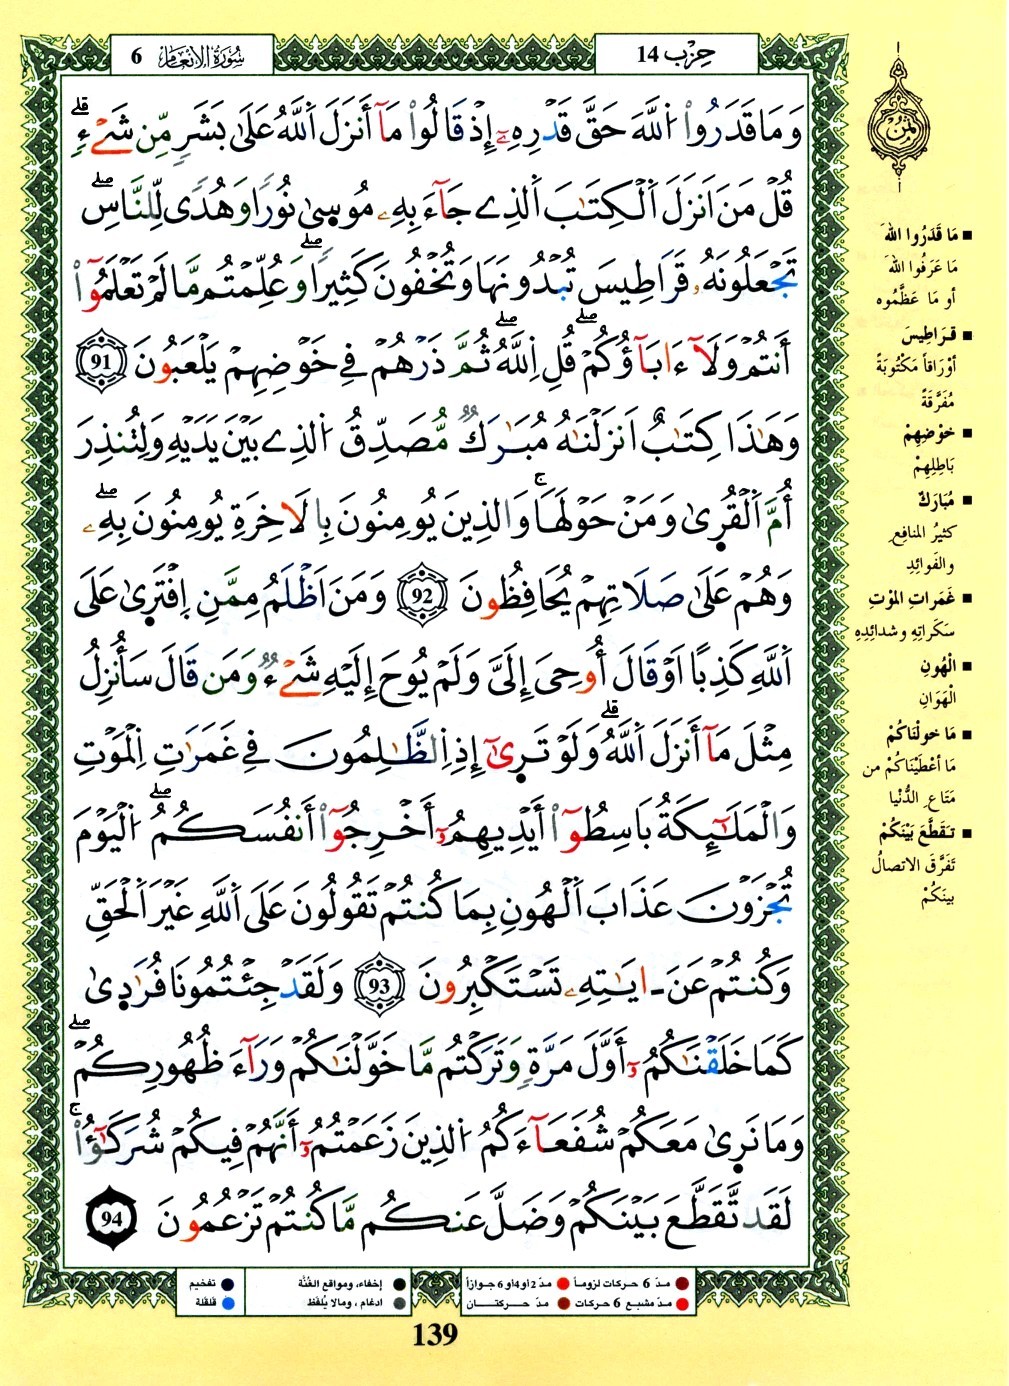 سُورَةُ الانْعَام 6
حِزْب 14
ثُمُن
وَمَا قَدَرُواْ اُ۬للَّهَ حَقَّ قَدْرِهِۦٓ إِذْ قَالُواْ مَآ أَنزَلَ اَ۬للَّهُ عَلَىٰ بَشَرٖ مِّن شَےْءٖۖ قلے
قُلْ مَنَ اَنزَلَ اَ۬لْكِتَٰبَ اَ۬لذِے جَآءَ بِهِۦ مُوس۪ىٰ نُوراٗ وَهُدىٗ لِّلنَّاسِ صلے
تَجْعَلُونَهُۥ قَرَاطِيسَ تُبْدُونَهَا وَتُخْفُونَ كَثِيراٗ صلے وَعُلِّمْتُم مَّا لَمْ تَعْلَمُوٓاْ
أَنتُمْ وَلَآ ءَابَآؤُكُمْ صلے قُلِ اِ۬للَّهُ صلے ثُمَّ ذَرْهُمْ فِے خَوْضِهِمْ يَلْعَبُونَ 91
وَهَٰذَا كِتَٰبٌ اَنزَلْنَٰهُ مُبَٰرَكٞ مُّصَدِّقُ اُ۬لذِے بَيْنَ يَدَيْهِ وَلِتُنذِرَ
أُمَّ اَ۬لْقُر۪ىٰ وَمَنْ حَوْلَهَا ج وَالذِينَ يُومِنُونَ بِالَاخِرَةِ يُومِنُونَ بِهِۦ صلے
وَهُمْ عَلَىٰ صَلَاتِهِمْ يُحَافِظُونَ 92 وَمَنَ اَظْلَمُ مِمَّنِ اِ۪فْتَر۪ىٰ عَلَى
اَ۬للَّهِ كَذِباً اَوْ قَالَ أُوحِىَ إِلَىَّ وَلَمْ يُوحَ إِلَيْهِ شَےْءٞ وَمَن قَالَ سَأُنزِلُ
مِثْلَ مَآ أَنزَلَ اَ۬للَّهُ قلے وَلَوْ تَر۪ىٰٓ إِذِ اِ۬لظَّٰلِمُونَ فِے غَمَرَٰتِ اِ۬لْمَوْتِ
وَالْمَلَٰٓئِكَةُ بَاسِطُوٓاْ أَيْدِيهِمُۥٓ أَخْرِجُوٓاْ أَنفُسَكُمُ صلے اُ۬لْيَوْمَ
تُجْزَوْنَ عَذَابَ اَ۬لْهُونِ بِمَا كُنتُمْ تَقُولُونَ عَلَى اَ۬للَّهِ غَيْرَ اَ۬لْحَقِّ
وَكُنتُمْ عَنَ ـ ايَٰتِهِۦ تَسْتَكْبِرُونَ 93 وَلَقَدْ جِئْتُمُونَا فُرَٰد۪ىٰ
كَمَا خَلَقْنَٰكُمُۥٓ أَوَّلَ مَرَّةٖ وَتَرَكْتُم مَّا خَوَّلْنَٰكُمْ وَرَآءَ ظُهُورِكُمْ صلے
وَمَا نَر۪ىٰ مَعَكُمْ شُفَعَآءَكُمُ اُ۬لذِينَ زَعَمْتُمُۥٓ أَنَّهُمْ فِيكُمْ شُرَكَٰٓؤُاْ ج
لَقَد تَّقَطَّعَ بَيْنَكُمْ وَضَلَّ عَنكُم مَّا كُنتُمْ تَزْعُمُونَ 94
■ مَا قَدَرُوا اللهَ
مَا عَرَفُوا اللهَ
أو مَا عَظَّمُوه
■ قَرَاطِيسَ
أَوْرَاقاً مَكْتُوبَةً
مُفَرَّقَةً
■ خَوْضِهِمْ
بَاطِلِهِمْ
■ مُبَارَكٌ
كثيرُ المنافِعِ
والفَوائِدِ
■ غَمَراتِ المَوْتِ
سَكَرَاتِهِ وشدائِدِهِ
■ الْهُونِ
الْهَوَانِ
■ مَا خوَلْنَاكُمْ
مَا أَعْطَيْنَاكُمْ من
مَتَاعِ الدُّنْيا
■ تَقَطَّعَ بَيْنَكُمْ
تَفَرَّقَ الاتصالُ
بينَكُمْ
مدّ 6 حركات لزوماً مدّ 2 أو 4 أو 6 جوازاً
مدّ مشبع 6 حركات مدّ حركتـــان
إخفاء، ومواقع الغُنَّة
ادغام ، ومالا يُلفَظ
تفخيم
قلقلة
139